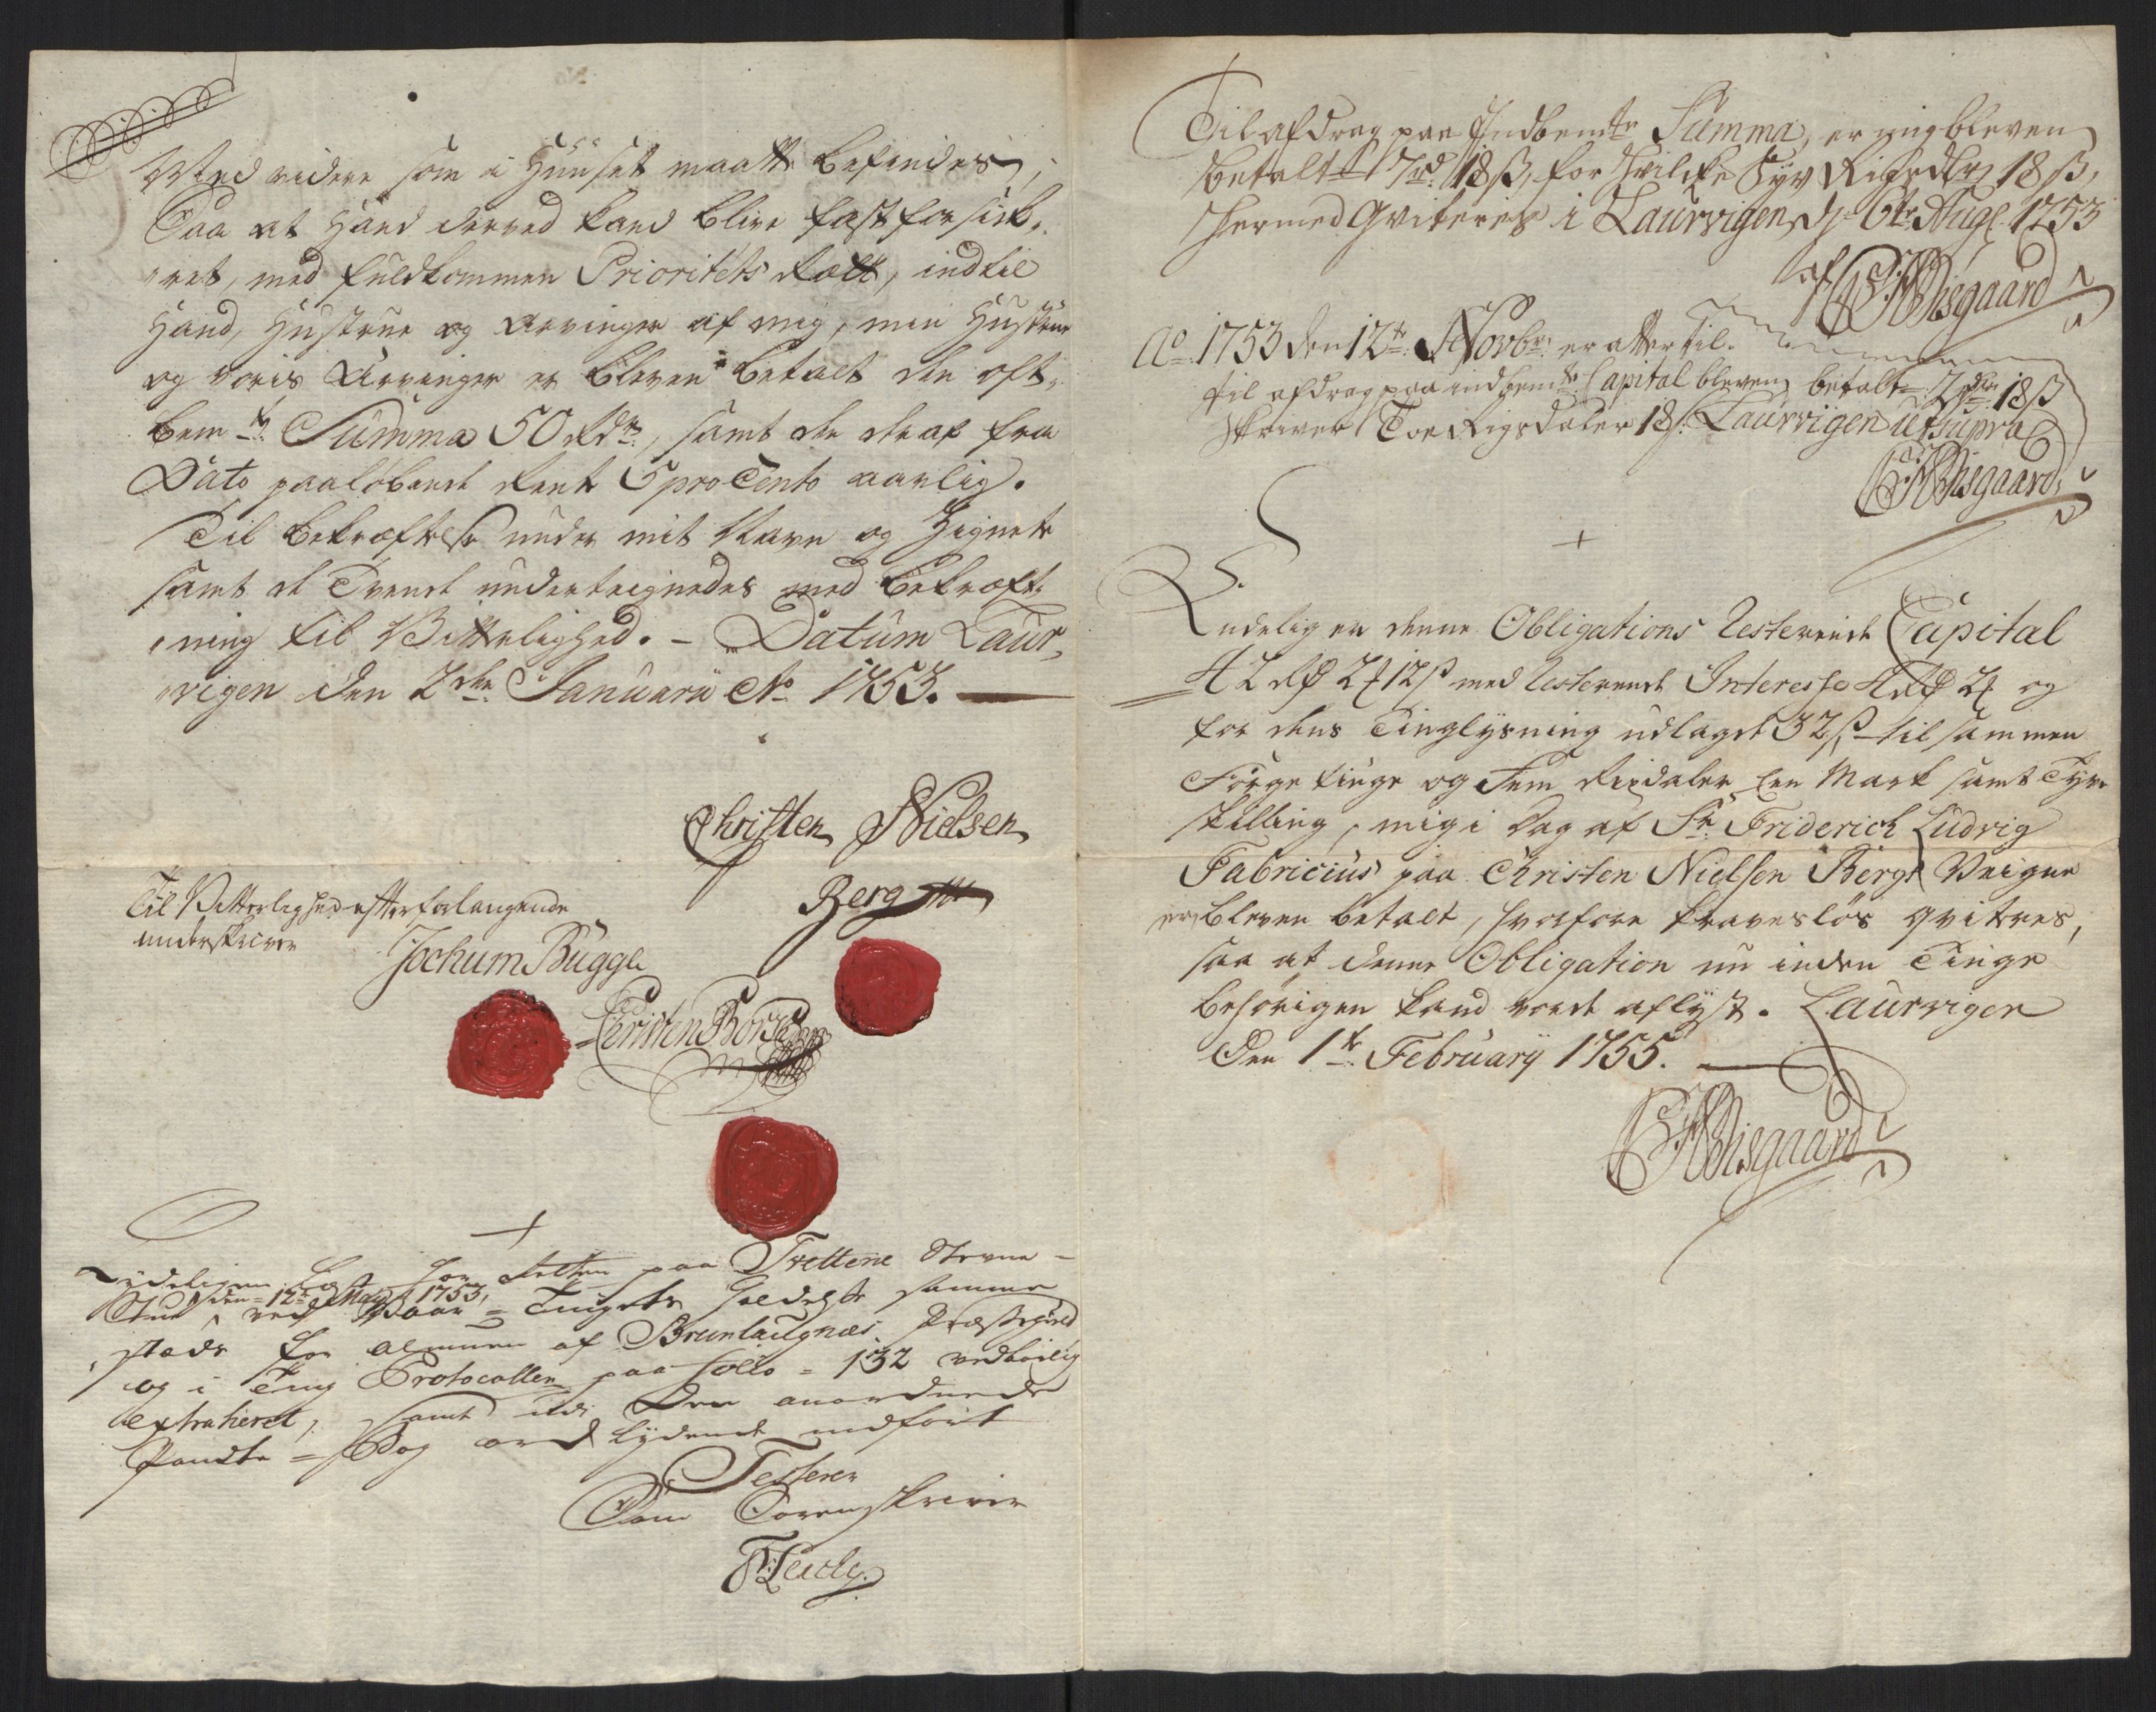 Med videre som i Huuset maatte befindes,
Paa at Hand derved kand blive fast forsik,,
,,ret, med fuldkommen Prioritets Rætt, indtil
Hand, Hustrue og Arvinger af mig, min Hustrue
og voris Arvinger er bleven betalt den oft,,
bemte Summa 50 Rdr, samt den deraf fra
Dato paalöbende Rente 5 pro Cento aarlig.
Til bekræftelse under mit Navn og Zignete
samt de Tvende underteignedes med bekræft,,
,,ning til Vitterlighed. – Datum Laur,,
,,vigen den 2den Januarii Ao 1753.
Christen Nielsen
Berg
Til Vitterlighed efter forlangende
underskriver
Jochum Bugge
Christen
Lydeligen Læst for Retten paa Trettene Stevne-
Stue, den 12te May 1753, ved Vaar-Tinget holdet samme
stæds for almuen af Brunlaugnæs Præstegield
og i Ting Protocollen paa folio 132 vedbörlig
extraheret, samt udi Den anordnede
Pandte-Bog ord lydende indfört
Testerer
Som Sorenskriver
FSeidg.
Til afdrag paa Indbemte Summa, er mig bleven
betalt 7rd 18 ß, for hvilke Syv Rigsdlr 18 ß,
hermed Qviteres i Laurvigen, d. 6te Aug. 1753
af Wisgaard
Ao 1753 den 12te Novbr er atter til
til afdrag paa indbemte Capital bleven betalt 2dr 18 ß
skriver Toe Rigsdaler 18 ß. Laurvigen ut supra
Wisgaard
Endelig er denne Obligations Resterende Capital
42 Rd 2 12 ß med Resterende Interesse Rd 2 og
for dens Tinglysning udlagde 32 ß til sammen
Förgetiuge og Fem Rixdaler Een Mark samt Tyve
skilling, mig i Dag af Sr. Friderich Ludvig
Fabricius paa Christen Nielsen Bergs Veigne
bleven betalt, hvorfore kravesløs qviteres,
saa at denne Obligation nu inden Tinge
behörigen kand vorde aflyst. Laurvigen
Den 1te February 1755.
Wisgaard